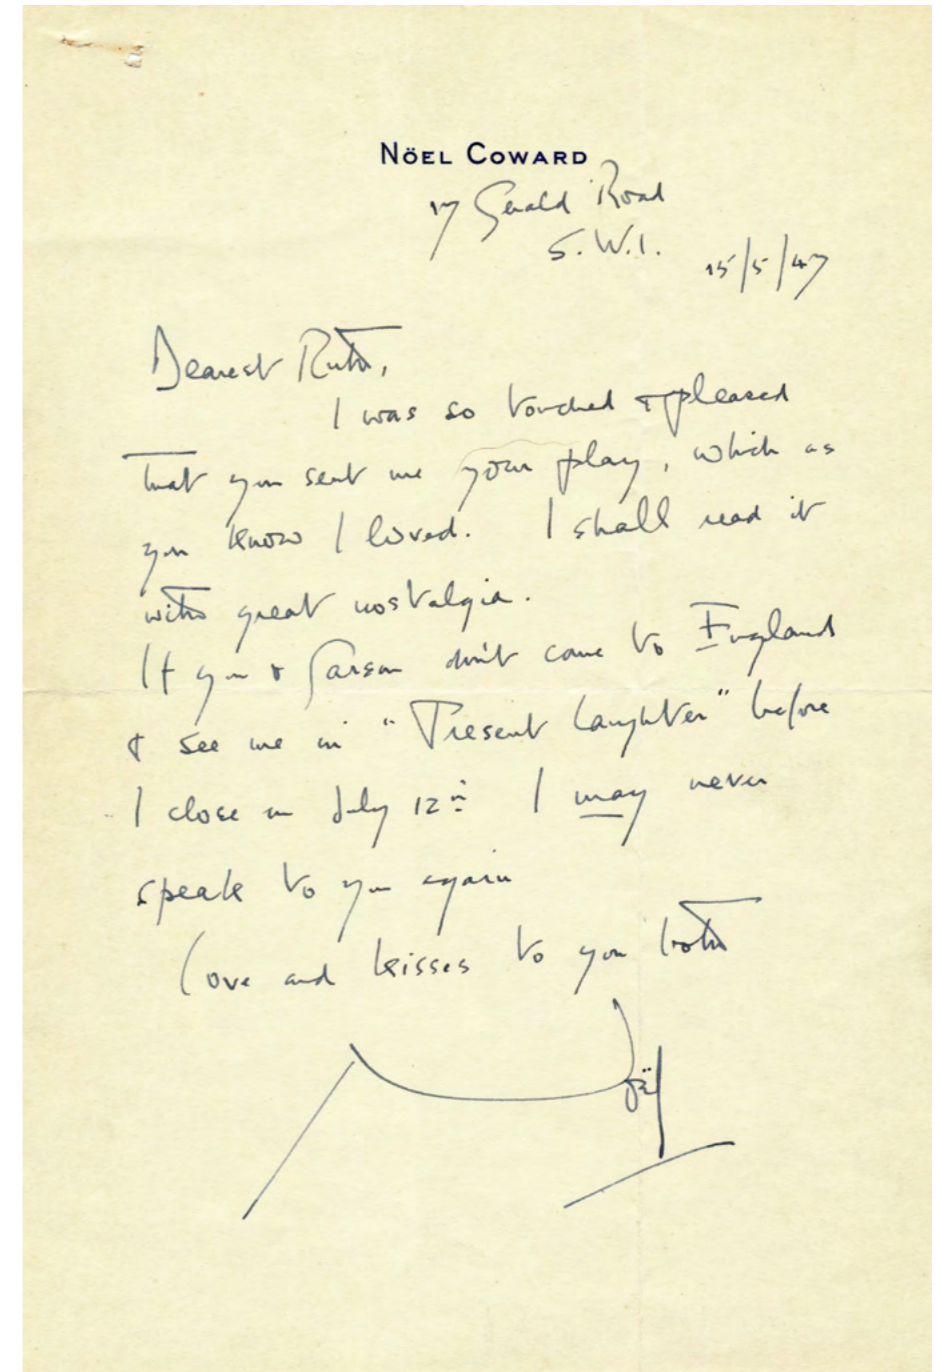 NÖEL COWARD
17 Gerald Road
S.W.1.
15/5/47
Dearest Ruth,
I was so touched & pleased
that you sent me your play, which as
you know I loved. I shall read it
with great nostalgia.
If you & Garson don't come to England
& see me in "Present Laughter" before
I close on July 12th I may never
speak to you again
Love and kisses to you both
Noël